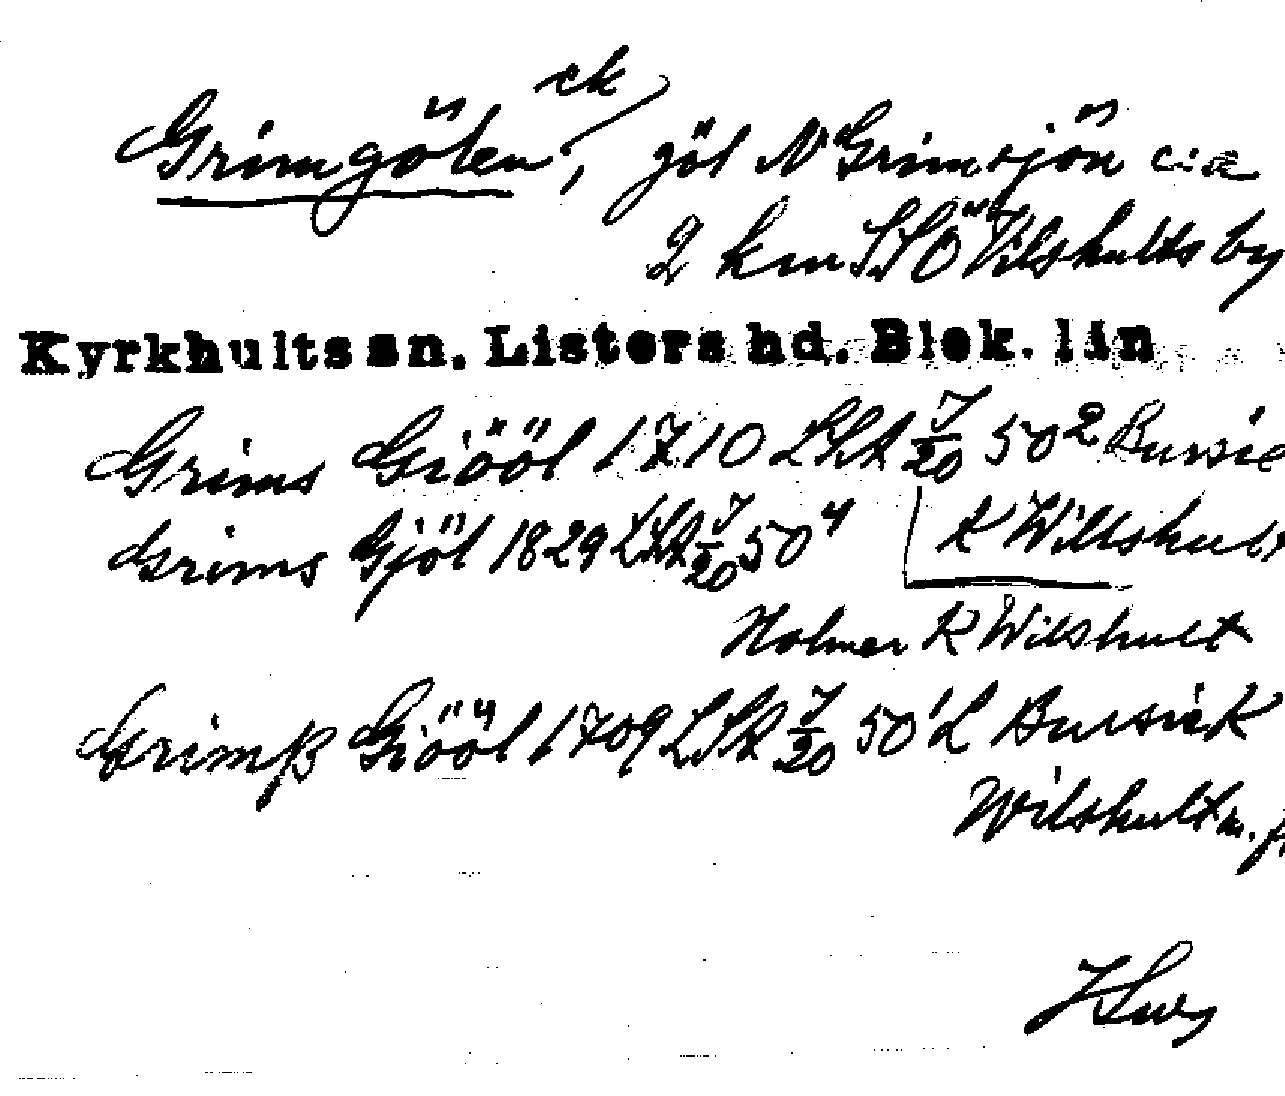 ek
Grimgölen, göl N Grimsjön c:a
2 km SSÖ Vilshults by
Kyrkhults sn. Listers hd. Blek. län
Grims Giööl 1710 LSA J/20 50² Bursie
Grims Gjöl 1829 LSA J/20 50⁴ K Willshult
Holmer K Wilshult
Grimß Giööl 1709 LSA J/20 50¹ L Bursie K
Wilshult m. fl